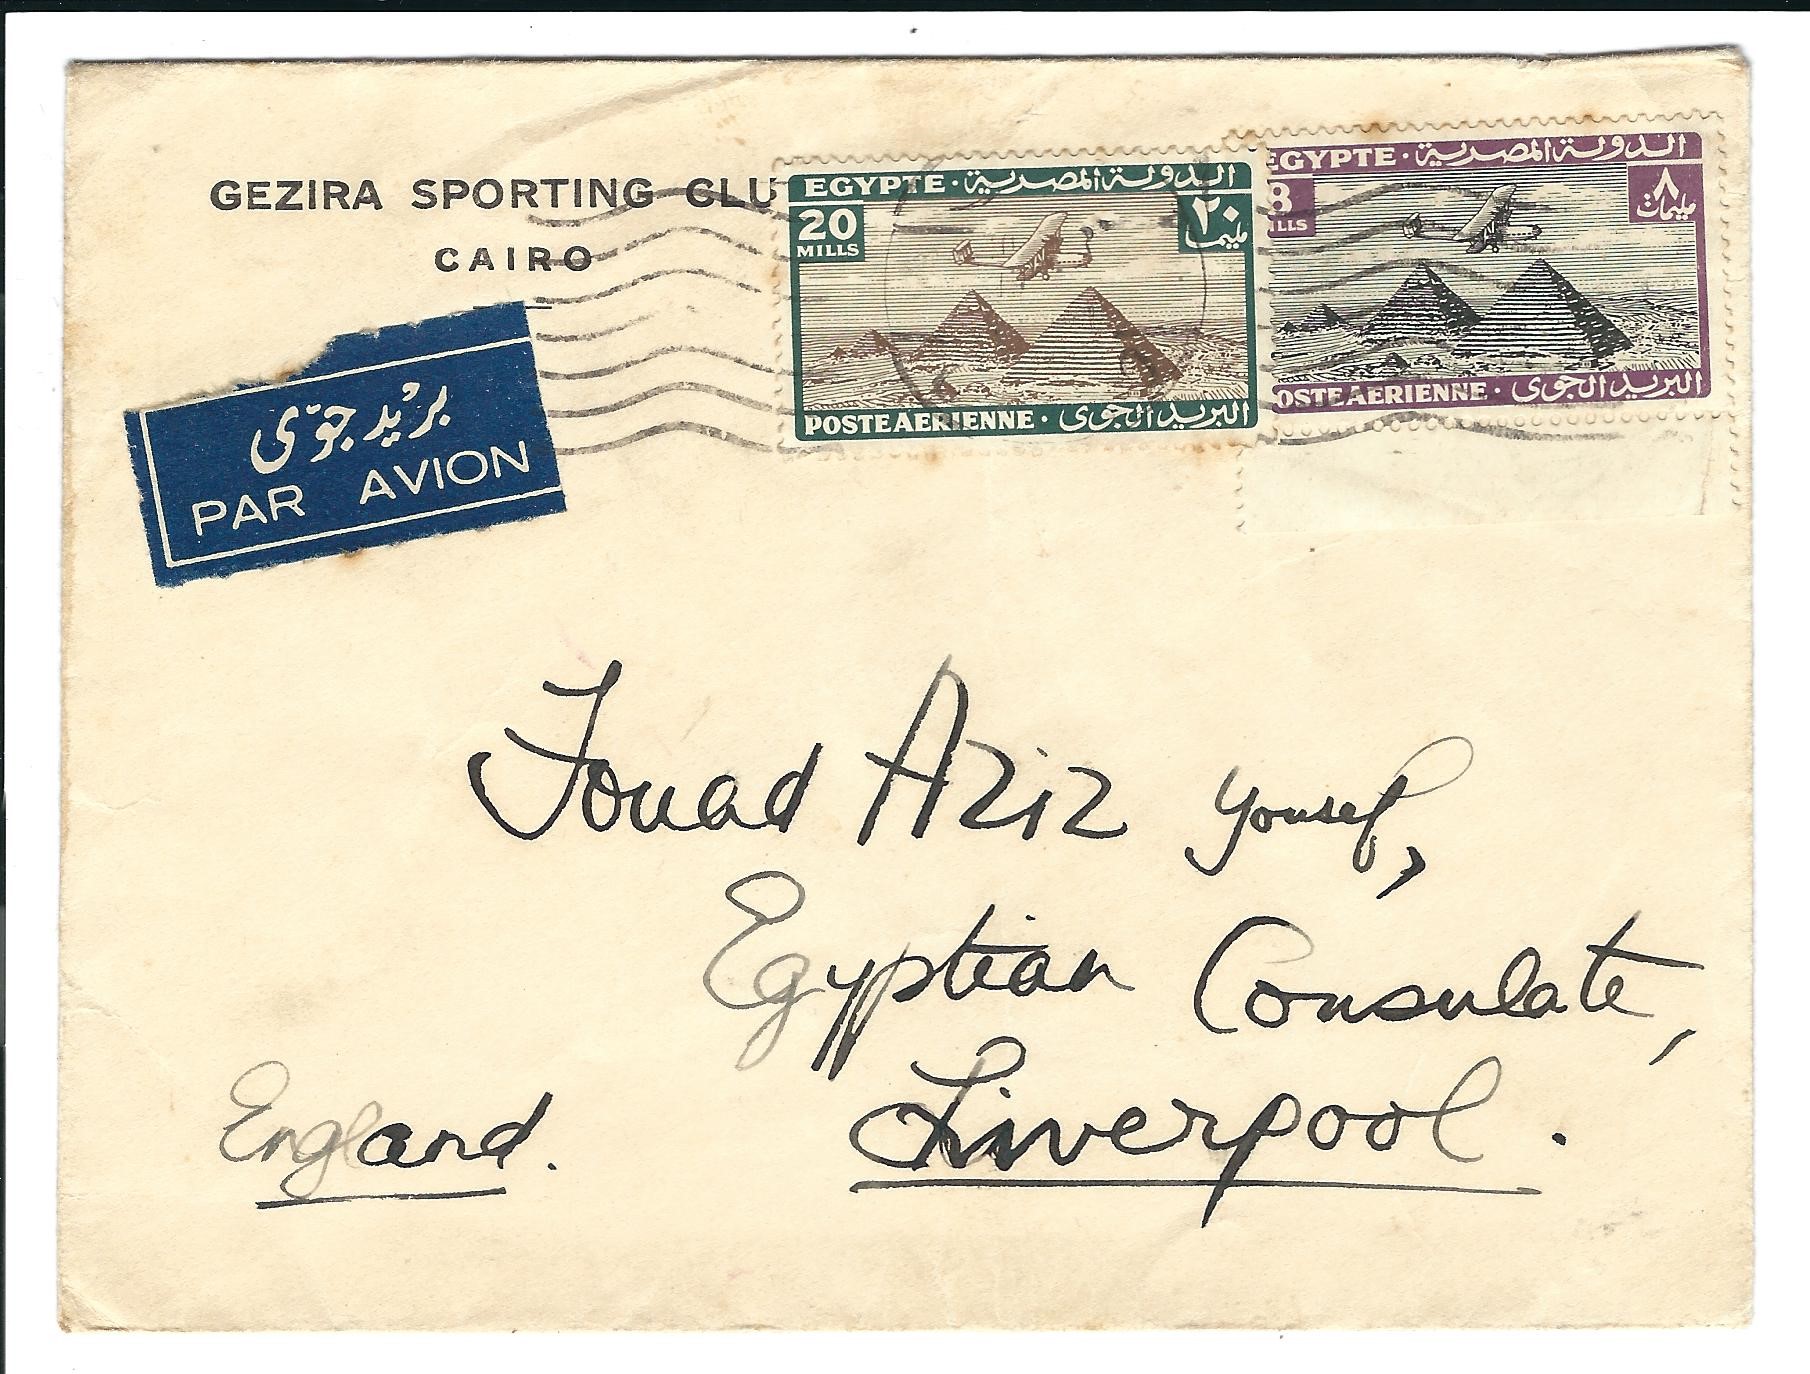 GEZIRA SPORTING CLU
CAIRO
EGYPTE · الدولة المصرية
20
MILLS
٢٠
مليمات
POSTE AERIENNE · البريد الجوى
EGYPTE · الدولة المصرية
8
ILLS
٨
مليمات
OSTE AERIENNE · البريد الجوى
بريد جوّى
PAR AVION
Fouad Aziz Yousef,
Egyptian Consulate,
Liverpool.
England.